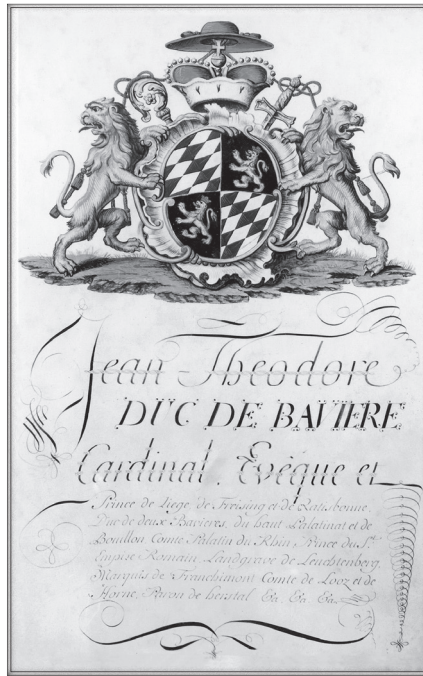 Jean Theodore
DUC DE BAVIERE
Cardinal, Evéque et
Prince de Liege, de Freising et de Ratisbonne,
Duc de deux Bavieres, du haut Palatinat et de
Bouillon, Comte Palatin du Rhin, Prince du St.
Empire Romain, Landgrave de Leuchtenberg,
Marquis de Franchimont, Comte de Looz et de
Horne, Baron de Herstal &a. &a. &a.